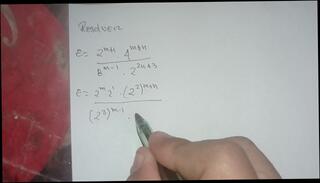 Resolver
E = 2^{m+1} 4^{m+n} / 8^{m-1} · 2^{2n+3}
E = 2^m 2^1 · (2^2)^{m+n} / (2^3)^{m-1} ·